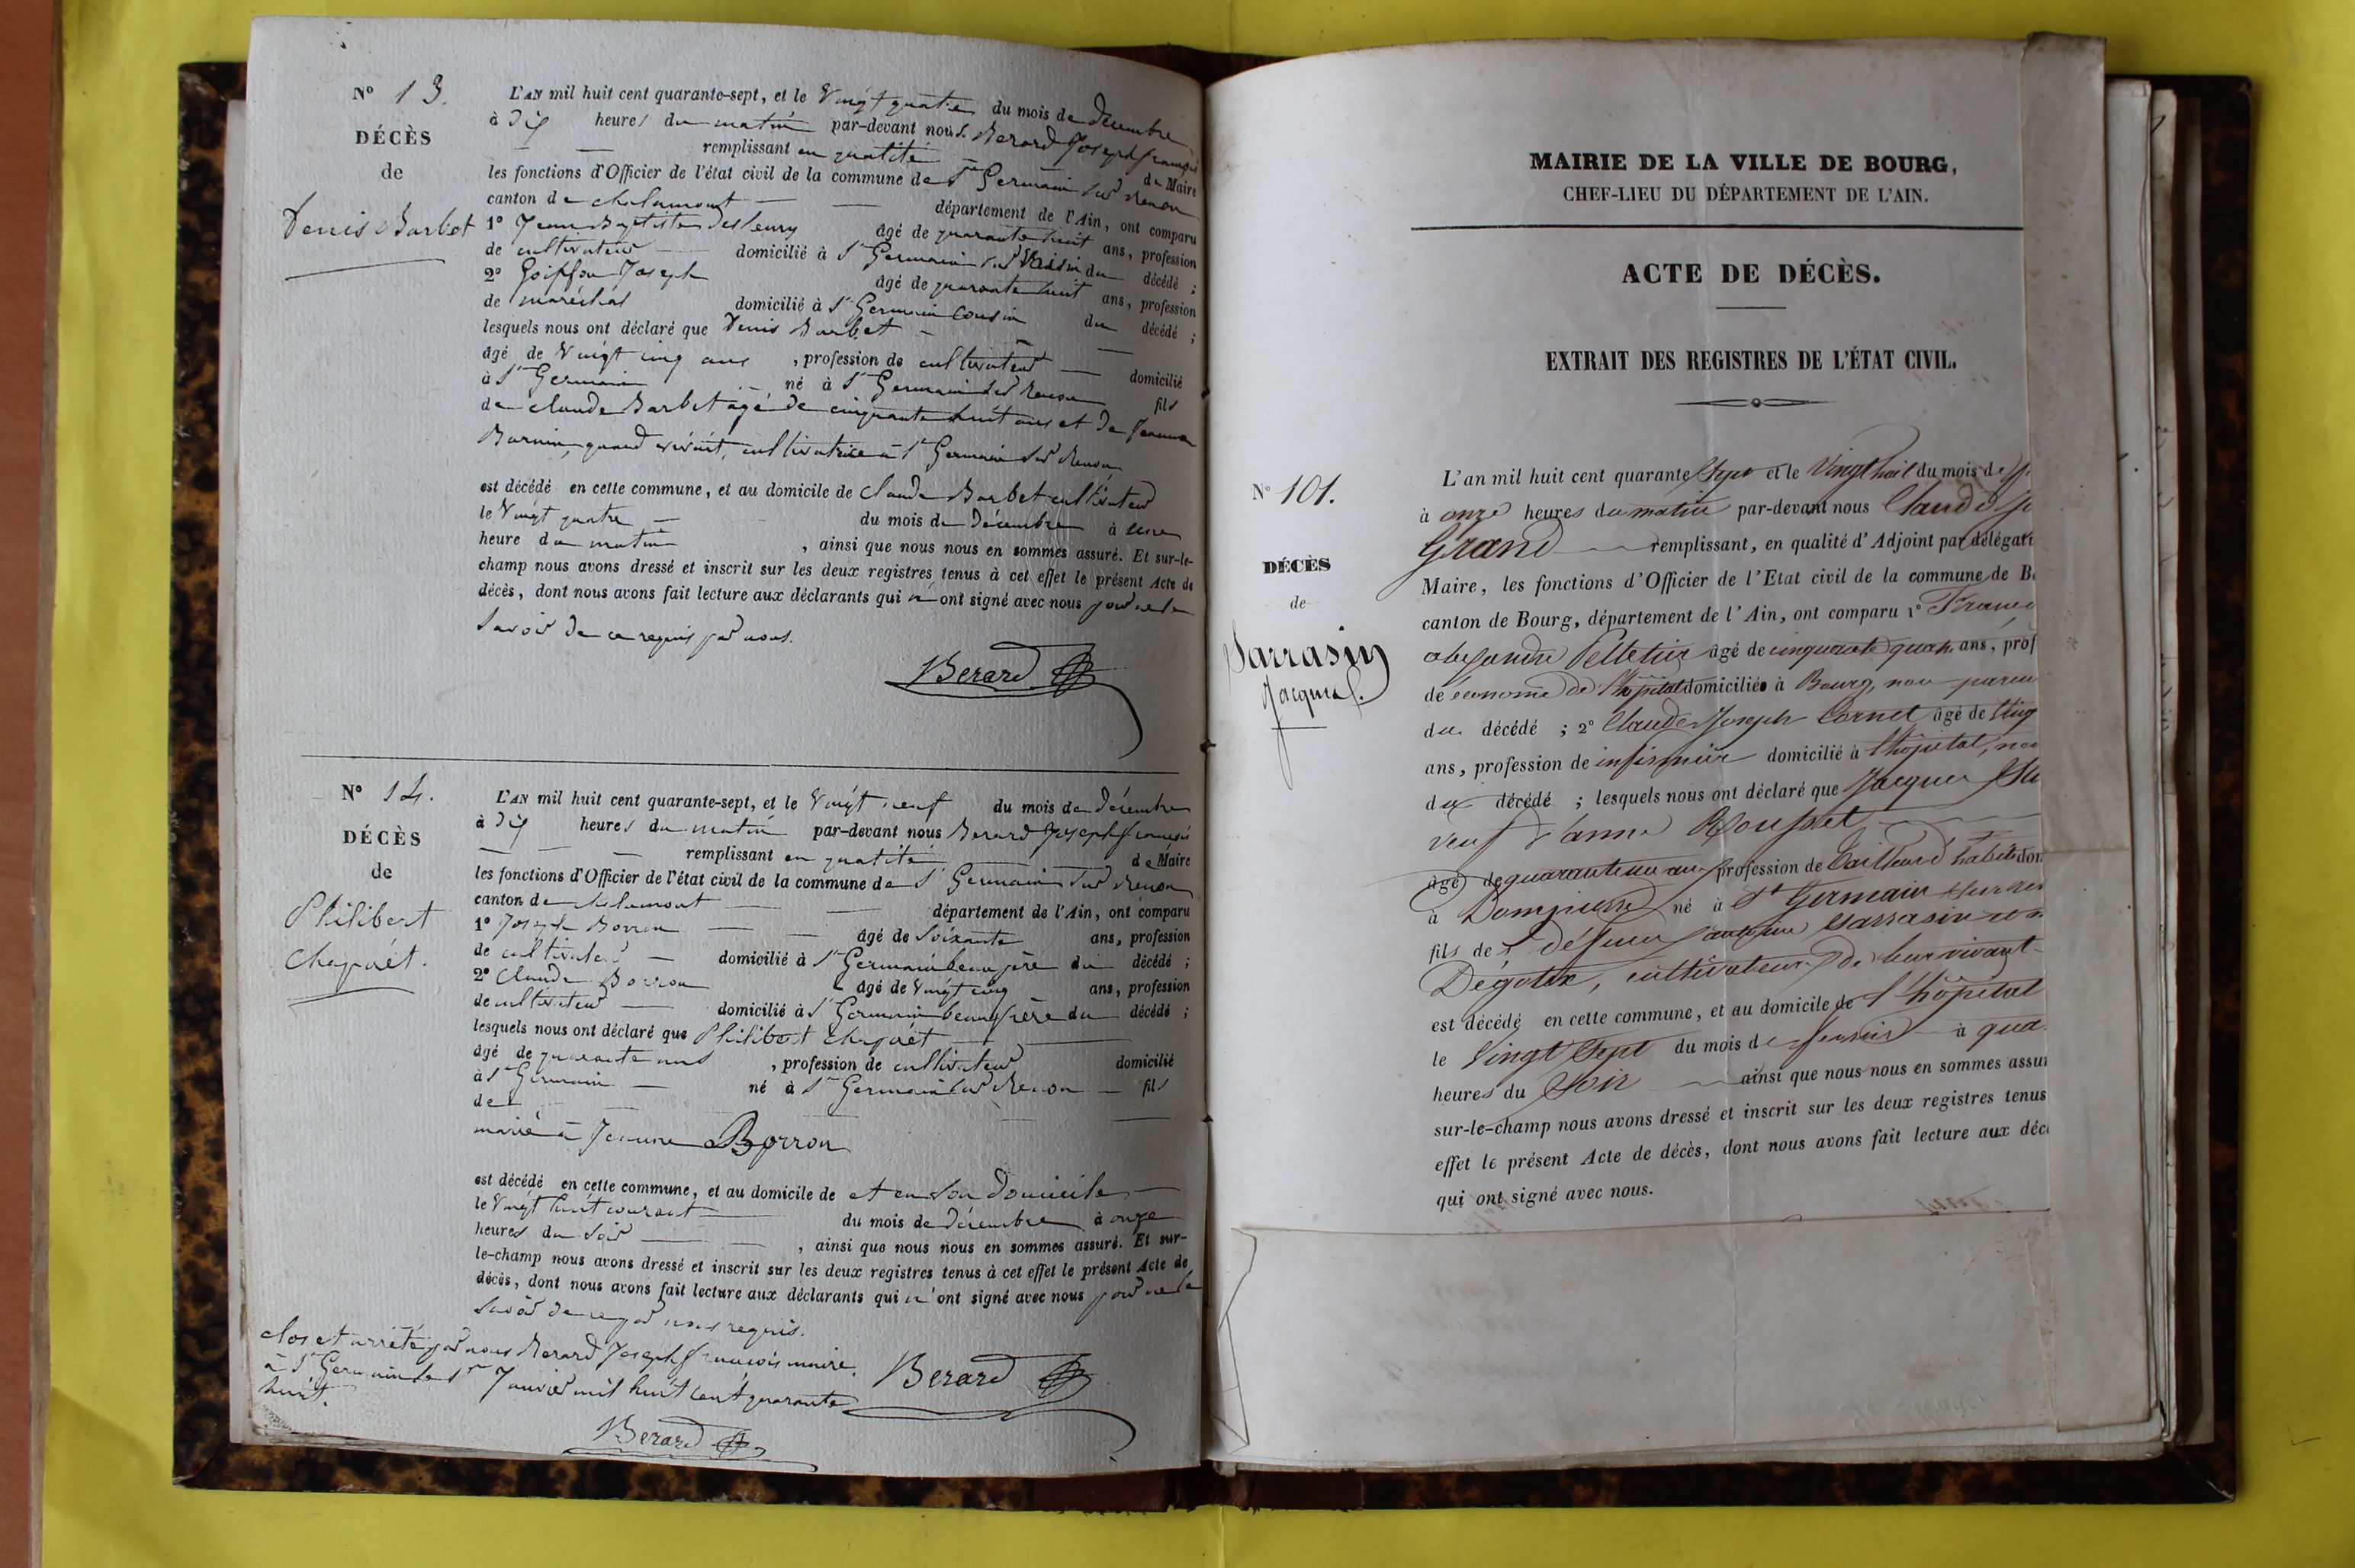 N° 13.
DÉCÈS
de
Denis Barbet
L'AN mil huit cent quarante-sept, et le Vingt quatre du mois de décembre
à dix heures du matin par-devant nous Berard Joseph françois
remplissant en qualité de Maire
les fonctions d'Officier de l'état civil de la commune de St Germain sur Renon
canton de chalamont département de l'Ain, ont comparu
1° Jean Baptiste Desfleury âgé de quarante huit ans, profession
de cultivateur domicilié à St Germain sur Voisin du décédé ;
2° Goiffon Joseph âgé de quarante huit ans, profession
de maréchal domicilié à St Germain Cousin du décédé ;
lesquels nous ont déclaré que Denis Barbet
âgé de Vingt cinq ans , profession de cultivateur domicilié
à St Germain né à St Germain sur Renon fils
de claude Barbet âgé de cinquante huit ans et de Jeanne
quand vivait, cultivatrice à St Germain sur Renon
est décédé en cette commune, et au domicile de claude Barbet cultivateur
le Vingt quatre du mois de Décembre à une
heure du matin , ainsi que nous nous en sommes assuré. Et sur-le-
champ nous avons dressé et inscrit sur les deux registres tenus à cet effet le présent Acte de
décès, dont nous avons fait lecture aux déclarants qui n'ont signé avec nous pour ne le
savoir de ce requis par nous.
Berard
N° 14.
DÉCÈS
de
Philibert
Chapuét.
L'AN mil huit cent quarante-sept, et le Vingt neuf du mois de décembre
à dix heures du matin par-devant nous Berard Joseph françois
remplissant en qualité de Maire
les fonctions d'Officier de l'état civil de la commune de St Germain sur Renon
canton de chalamont département de l'Ain, ont comparu
1° Joseph Borron âgé de soixante ans, profession
de cultivateur domicilié à St Germain beau père du décédé ;
2° Claude Borron âgé de Vingt cinq ans, profession
de cultivateur domicilié à St Germain beau frère du décédé ;
lesquels nous ont déclaré que Philibert chapuét
âgé de quarante ans , profession de cultivateur domicilié
à St Germain né à St Germain sur Renon fils
de
marié à Jeanne Borron
est décédé en cette commune, et au domicile de et en son Domicile
le Vingt huit courant du mois de décembre à onze
heures du soir , ainsi que nous nous en sommes assuré. Et sur-
le-champ nous avons dressé et inscrit sur les deux registres tenus à cet effet le présent Acte de
décès, dont nous avons fait lecture aux déclarants qui n'ont signé avec nous pour ne le
savoir de ce par nous requis.
clos et arrêté par nous Berard Joseph françois maire
à St Germain le 1er Janvier mil huit cent quarante
huit.
Berard
Berard
MAIRIE DE LA VILLE DE BOURG,
CHEF-LIEU DU DÉPARTEMENT DE L'AIN.
ACTE DE DÉCÈS.
EXTRAIT DES REGISTRES DE L'ÉTAT CIVIL.
N° 101.
DÉCÈS
de
Sarrasin
Jacques
L'an mil huit cent quarante Sept et le Vingt huit du mois de
à onze heures du matin par-devant nous Claude
Grand remplissant, en qualité d'Adjoint par délégati
Maire, les fonctions d'Officier de l'Etat civil de la commune de B
canton de Bourg, département de l'Ain, ont comparu 1° Franç
alexandre Pelletier âgé de cinquante quatre ans, prof
de économe de l'hôpital domicilié à Bourg, non paren
du décédé ; 2° Claude Joseph Cornet âgé de Ving
ans, profession de infirmier domicilié à l'hôpital, non
du décédé ; lesquels nous ont déclaré que Jacques Sa
veuf d'anne Rousset
âgé de quarante un ans profession de Tailleur d'habits dom
à Dompierre né à St Germain sur ren
fils de défunts antoine Sarrasin
Dégolix, cultivateurs de leur vivant
est décédé en cette commune, et au domicile de l'hôpital
le Vingt Sept du mois de janvier à qua
heures du Soir ainsi que nous nous en sommes assur
sur-le-champ nous avons dressé et inscrit sur les deux registres tenus
effet le présent Acte de décès, dont nous avons fait lecture aux décl
qui ont signé avec nous.